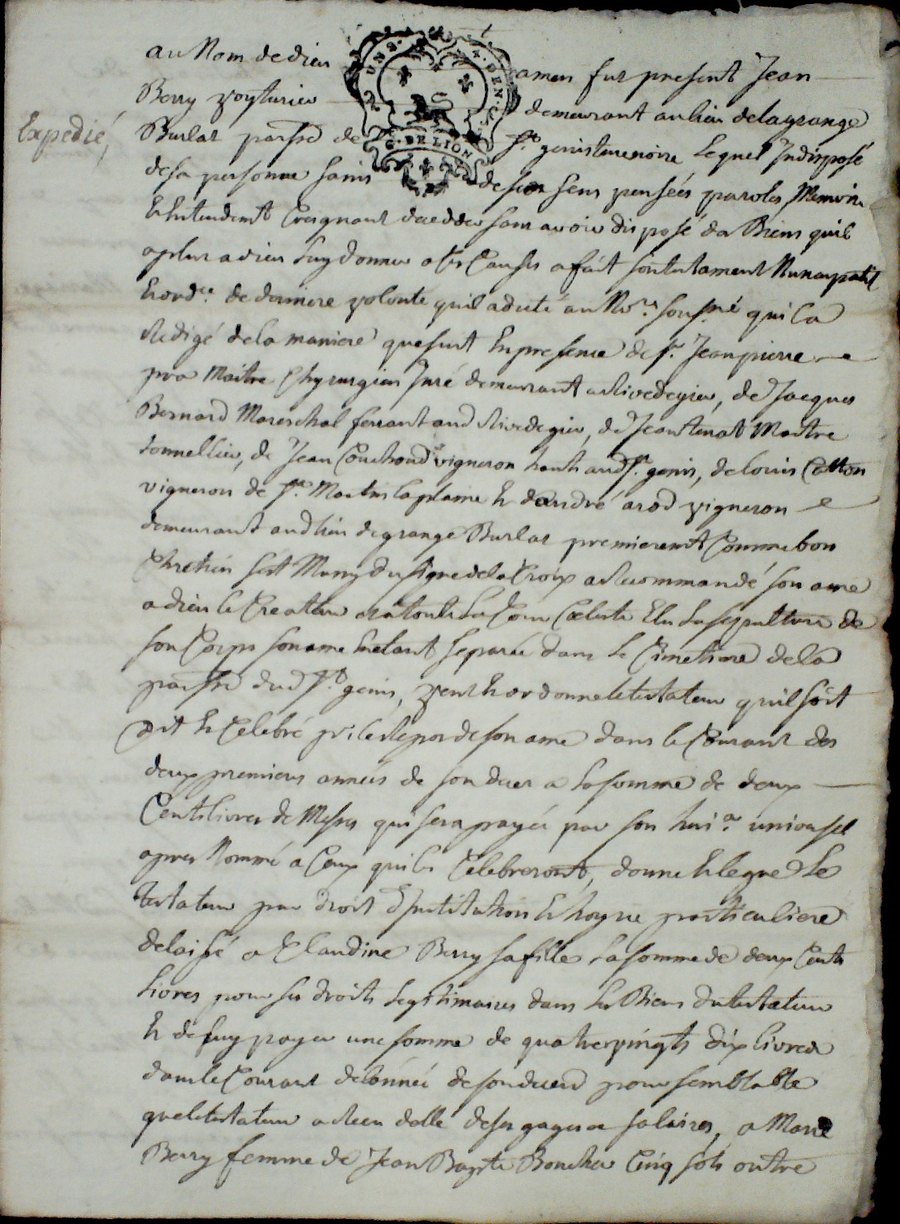 au Nom de dieu amen fut present Jean
Berry voyturier demeurant au lieu de la grange
Expedié,
Burlat parsse de St. genis terrenoire Lequel Indisposé
UN S. 4. DEN.
G. DE LION
de sa personne sains de ses sens pensées paroles Memoire
& Entendement Craignant decedder sans avoir disposé des Biens quil
a plut a dieu luy donner a ses Causes a fait son testament Nuncupatif
& ordre. de derniere volonté quil a dicté au Nore. soussné qui la
Redigé de la maniere que suit En presence de Sr. Jean pierre
Maitre Chyrurgien Juré demeurant a Rivedegier, de Jacques
Bernard Mareschal ferrant aud Rivedegier, de Jean tenat Maitre
tonnellier, de Jean Couchoud vigneron hants aud St. genis, de louis Cotton
vigneron de St. Martin la plaine & d'andré arod vigneron
demeurant aud lieu de grange Burlat premierement Comme bon
Chretien sest Muny du signe de la Croix a Recommandé son ame
a dieu le Createur & a toute la Cour Celeste Elu la sepulture de
son Corps son ame En etant separée dans le Cimetiere de la
parsse dud St. genis, veut & ordonne le testateur quil soit
Dit & Celebré pr. le Repos de son ame dans le Courant des
deux premieres années de son deces a la somme de deux
Cent livres de Messes qui sera payée par son heri.er universel
apres Nommé a Ceux qui les Celebreront, donne & legue Le
testateur par droit d'Institution & hoyrie particuliere
delaissé a Claudine Berry sa fille la somme de deux Cents
livres pour ses droits Legitimaires dans les Biens du testateur
& de luy payer une somme de quatrevingts dix livres
dans le Courant de lannée de son deces pour semblable
que le testateur a Receu delle de ses gages & salaires, a Marie
Berry femme de Jean Bapte Boucher Cinq sols outre